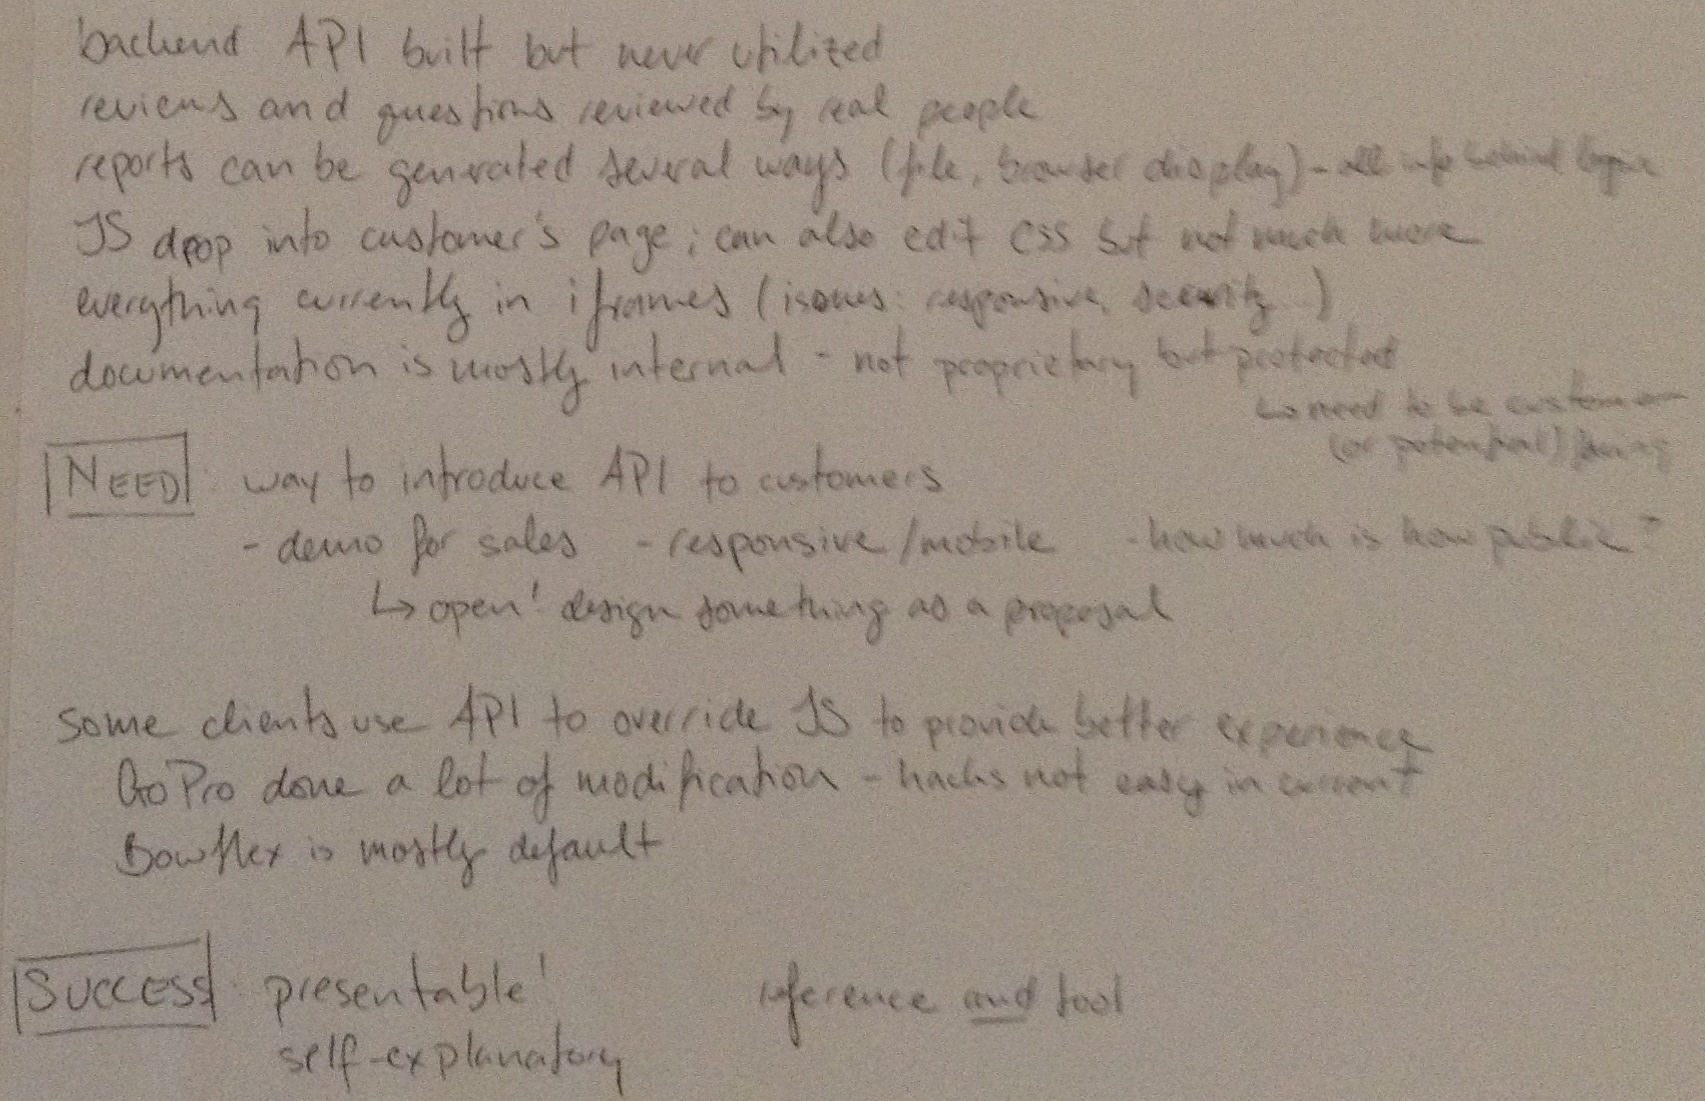 backend API built but never utilized
reviews and questions reviewed by real people
reports can be generated several ways (file, browser display) - all info behind login
JS drop into customer's page; can also edit CSS but not much more
everything currently in iframes (issues: responsive, security...)
documentation is mostly internal - not proprietary but protected
↳ need to be customer
(or potential)
NEED: way to introduce API to customers
- demo for sales - responsive/mobile - how much is how public?
↳ open! design something as a proposal
some clients use API to override JS to provide better experience
GoPro done a lot of modification - hacks not easy in current
Bowflex is mostly default
SUCCESS: presentable! reference and tool
self-explanatory